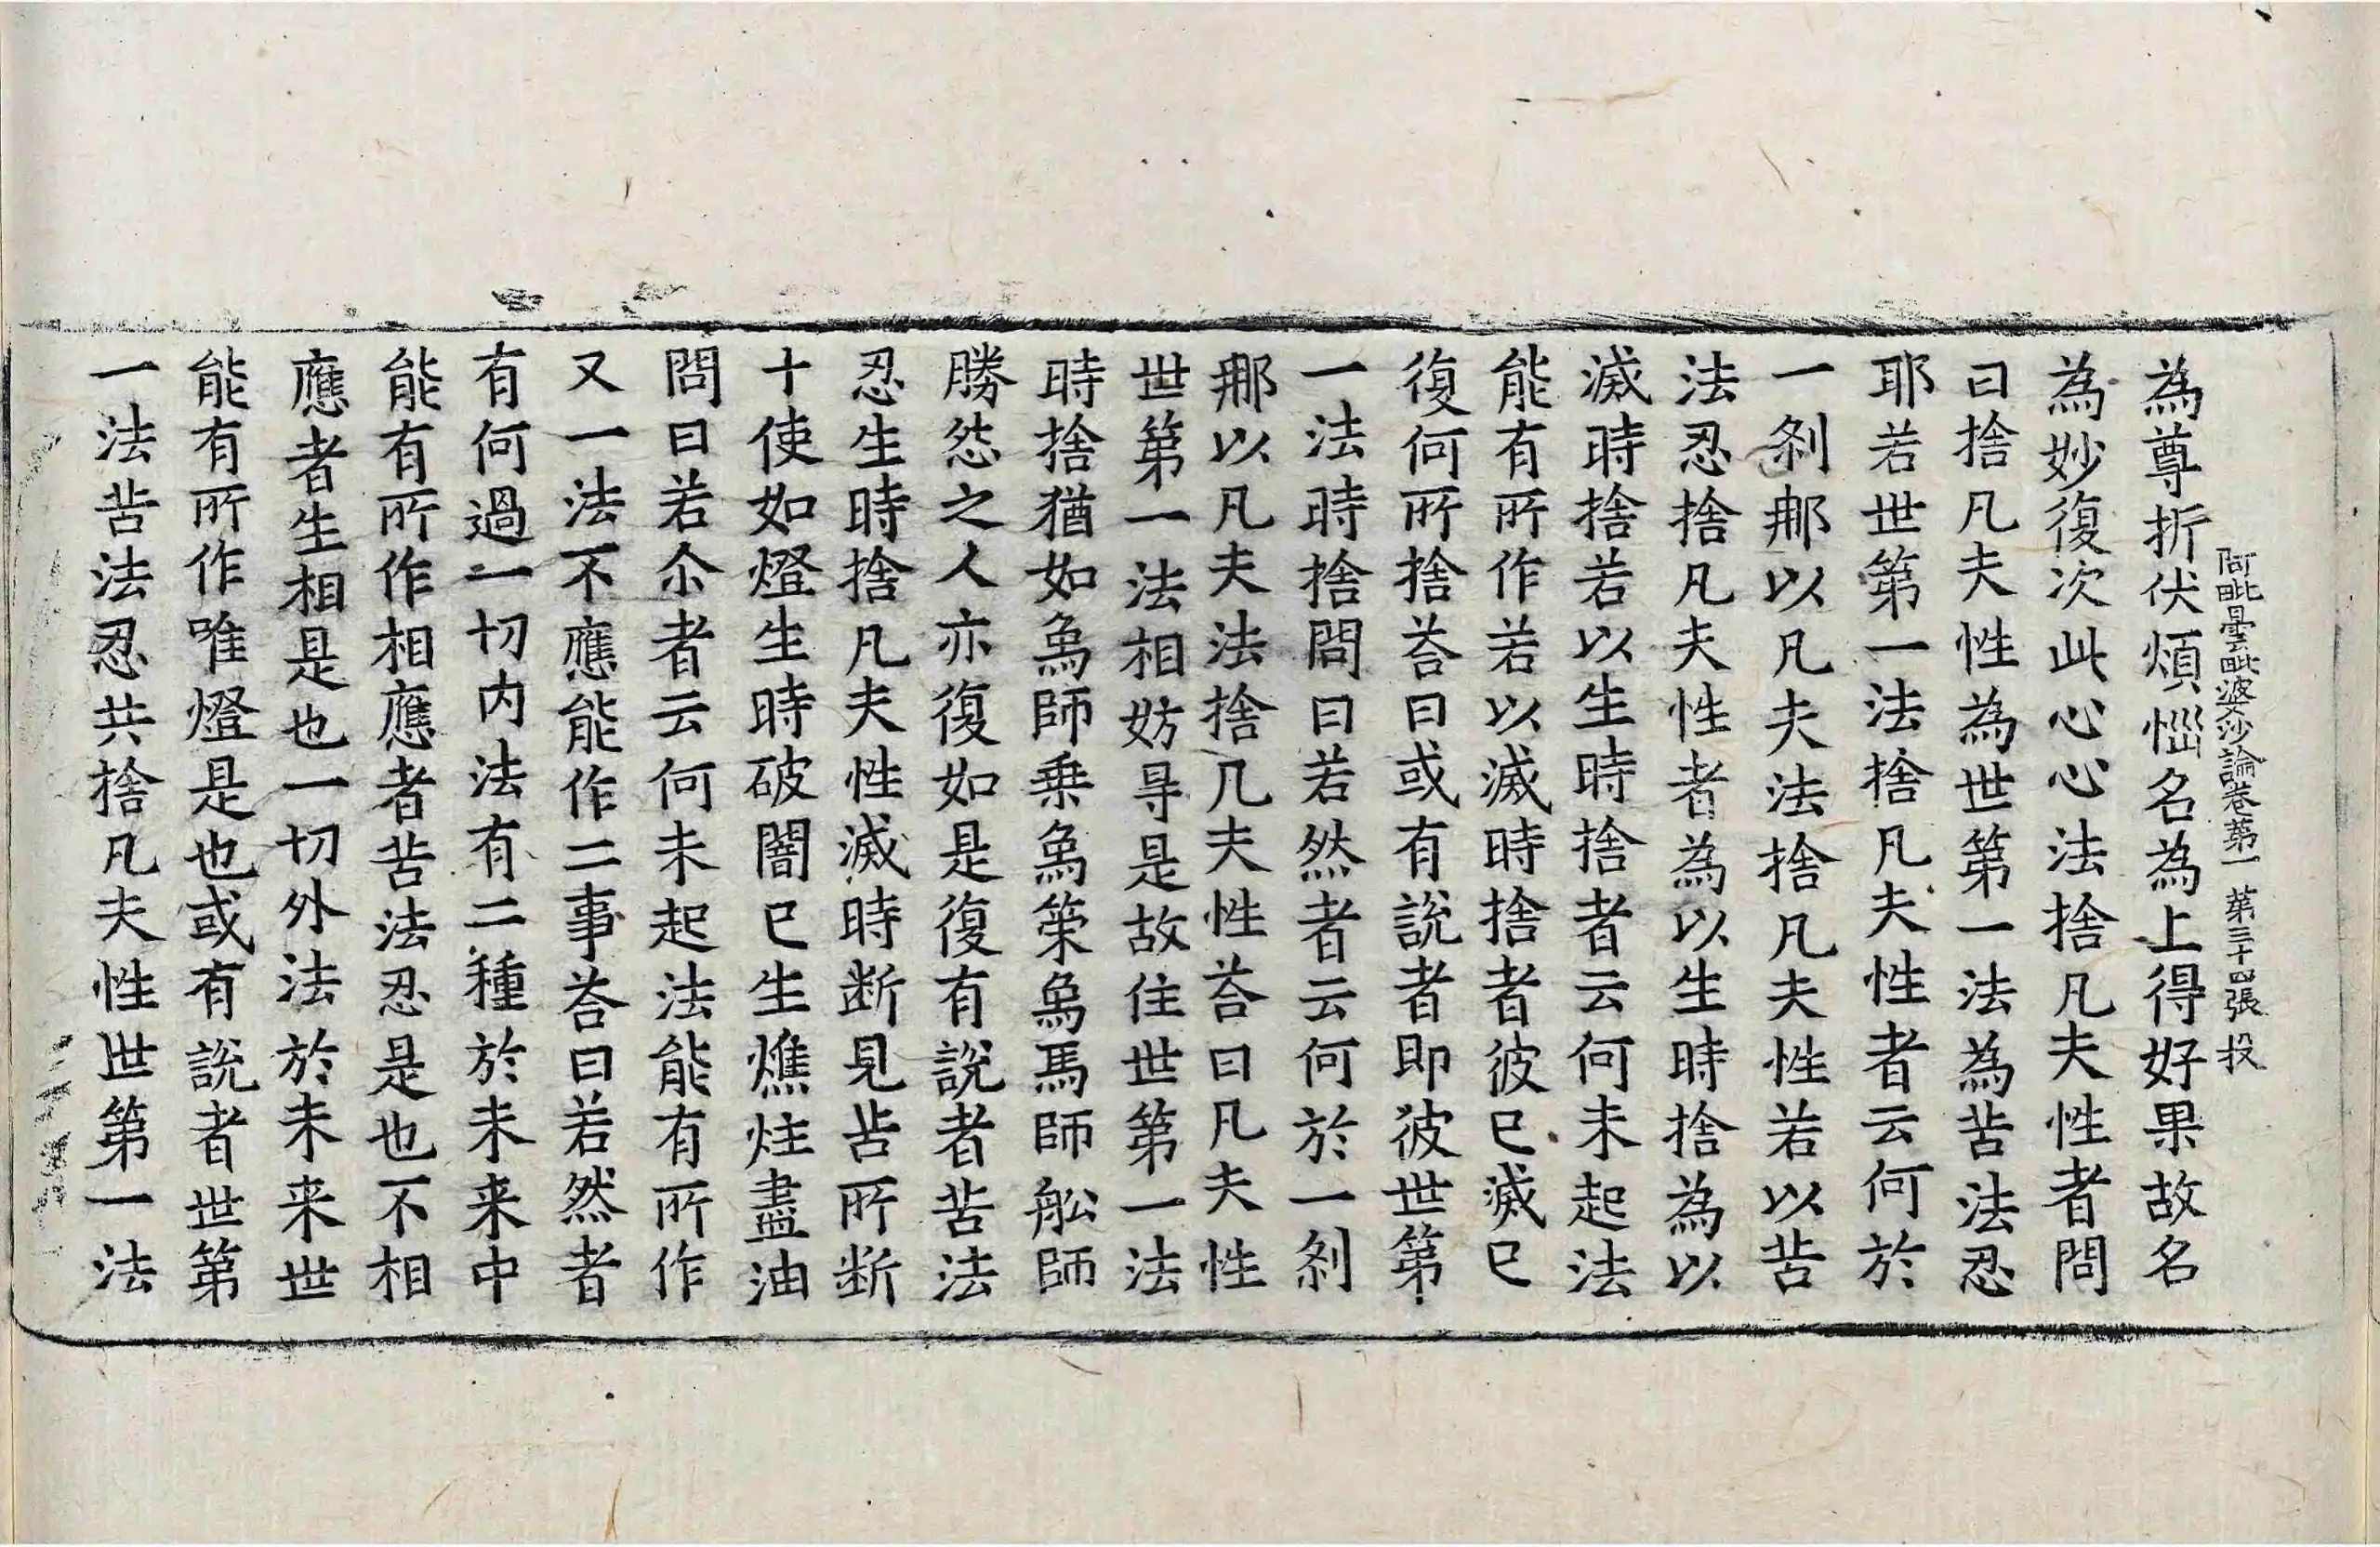 阿毗曇毗婆沙論卷第一 第三十四張 投
為尊折伏煩惱名為上得好果故名
為妙復次此心心法捨凡夫性者問
曰捨凡夫性為世第一法為苦法忍
耶若世第一法捨凡夫性者云何於
一剎那以凡夫法捨凡夫性若以苦
法忍捨凡夫性者為以生時捨為以
滅時捨若以生時捨者云何未起法
能有所作若以滅時捨者彼已滅已
復何所捨荅曰或有說者即彼世第
一法時捨問曰若然者云何於一剎
那以凡夫法捨凡夫性荅曰凡夫性
世第一法相妨㝵是故住世第一法
時捨猶如象師乗象策象馬師舩師
勝怨之人亦復如是復有說者苦法
忍生時捨凡夫性滅時断見苦所断
十使如燈生時破闇已生燋炷盡油
問曰若尒者云何未起法能有所作
又一法不應能作二事荅曰若然者
有何過一切内法有二種於未来中
能有所作相應者苦法忍是也不相
應者生相是也一切外法於未来世
能有所作唯燈是也或有說者世第
一法苦法忍共捨凡夫性世第一法